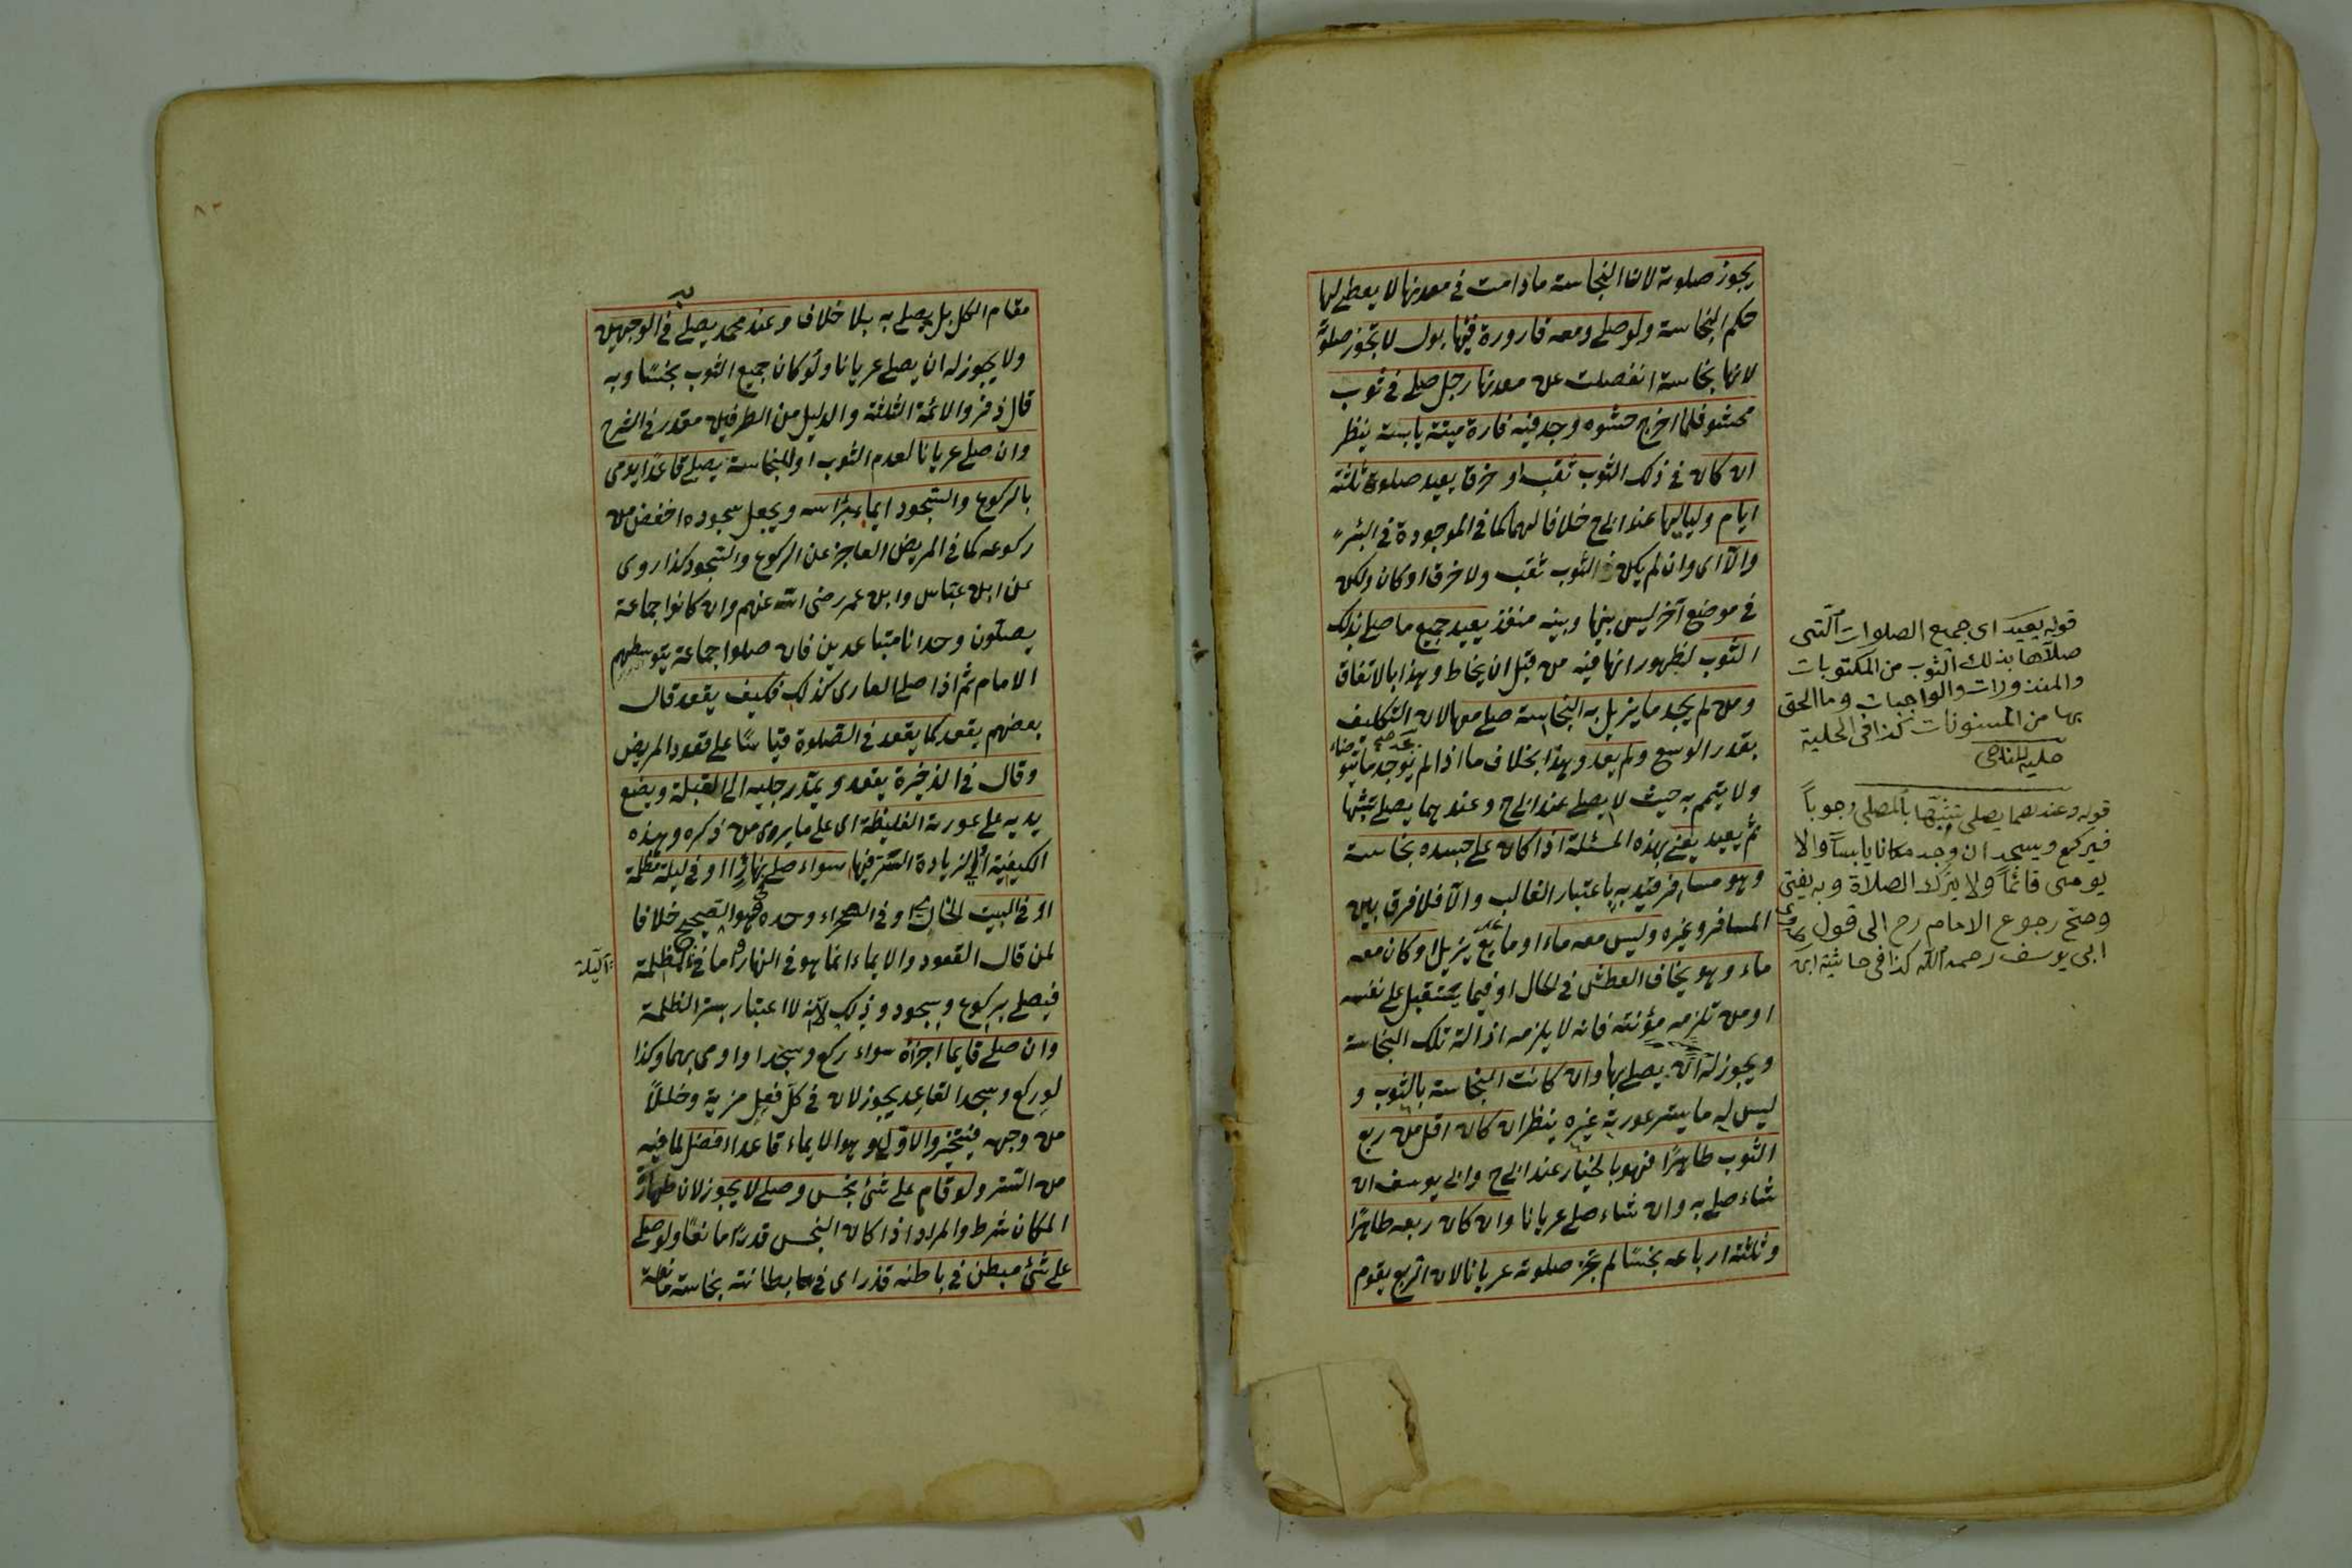 يجوز صلوته لان النجاسة مادامت فى معدنها لا يعطى لها
حكم النجاسة ولو صلى ومعه قارورة فيها بول لا تجوز صلوته
لانها نجاسة انفصلت عن معدنها رجل صلى فى ثوب
محشو فلما اخرج حشوه وجد فيه فارة ميتة يابسة ينظر
ان كان فى ذلك الثوب ثقب او خرق يعيد صلوة ثلثة
ايام ولياليها عند ابى ح خلافا لهما كما فى الموجودة فى البئر
والا اى وان لم يكن فى الثوب ثقب ولا خرق او كان ولكن
فى موضع آخر ليس بينها وبينه منفذ يعيد جميع ما صلى بذلك
الثوب لظهور انها فيه من قبل ان يخاط وهذا بالاتفاق
ومن لم يجد ما يزيل به النجاسة صلى معها لان التكليف
بقدر الوسع ولم يعد وهذا بخلاف ما اذا لم يوجد ما يتوضاء
ولا يتيمم به حيث لا يصلى عند ابى ح وعندهما يصلى تشبها
ثم يعيد يعنى بهذه المسئلة اذا كان على جسده نجاسة
وهو مسافر قيد به باعتبار الغالب والا فلا فرق بين
المسافر وغيره وليس معه ماء او مايع يزيل او كان معه
ماء وهو يخاف العطش فى الحال او فيما يستقبل على نفسه
او من تلزمه مؤنته فانه لا يلزمه ازالة تلك النجاسة
ويجوز له ان يصلى بها وان كانت النجاسة بالثوب و
ليس له ما يستر عورته غيره ينظر ان كان اقل من ربع
الثوب طاهرا فهو بالخيار عند ابى ح وابى يوسف ان
شاء صلى به وان شاء صلى عريانا وان كان ربعه طاهرا
وثلثة ارباعه نجسا لم تجز صلوته عريانا لان الربع يقوم
قوله يعيد اى جميع الصلوات التى
صلاها بذلك الثوب من المكتوبات
والمنذورات والواجبات وما الحق
بها من المسنونات كذا فى الحلية
قوله وعندهما يصلى تشبها بالمصلى وجوباً
فيركع ويسجد ان وجد مكانا يابساً والا
يومى قائماً ولا يترك الصلاة وبه يفتى
وصح رجوع الامام رح الى قول
ابى يوسف رحمه الله كذا فى حاشية
مقام الكل بل يصلى به بلا خلاف وعند محمد يصلى به فى الوجهين
ولا يجوز له ان يصلى عريانا ولو كان جميع الثوب نجسا وبه
قال زفر والائمة الثلثة والدليل من الطرفين مقدر فى الشرح
وان صلى عريانا لعدم الثوب او للنجاسة يصلى قاعدا يومى
بالركوع والسجود ايماء براسه ويجعل سجوده اخفض من
ركوعه كما فى المريض العاجز عن الركوع والسجود كذا روى
عن ابن عباس وابن عمر رضى الله عنهم وان كانوا جماعة
يصلون وحدانا متباعدين فان صلوا جماعة يتوسطهم
الامام ثم اذا صلى العارى كذلك فكيف يقعد قال
بعضهم يقعد كما يقعد فى الصلوة قياسا على قعود المريض
وقال فى الذخيرة يقعد ويمد رجليه الى القبلة ويضع
يديه على عورته الغليظة اى على ما يروى من ذكره وهذه
الكيفية اولى لزيادة الستر فيها سواء صلى نهارا او فى ليلة مظلمة
او فى البيت الخالى او فى الصحراء وحده وهو الصحيح خلافا
لمن قال القعود والايماء انما هو فى النهار واما فى الليلة المظلمة
فيصلى بركوع وسجود وذلك لانه لا اعتبار بستر الظلمة
وان صلى قايما اجزاه سواء ركع وسجد او اومى بهما وكذا
لو ركع وسجد القاعد يجوز لان فى كل فعل مزية وخللاً
من وجه فيتخير والاول وهو الايماء قاعدا افضل لما فيه
من الستر ولو قام على شئ نجس وصلى لا يجوز لان طهارة
المكان شرط والمراد اذا كان النجس قدرا مانعا ولو صلى
على شئ مبطن فى باطنه قذر اى فى بطانته نجاسة مانعة